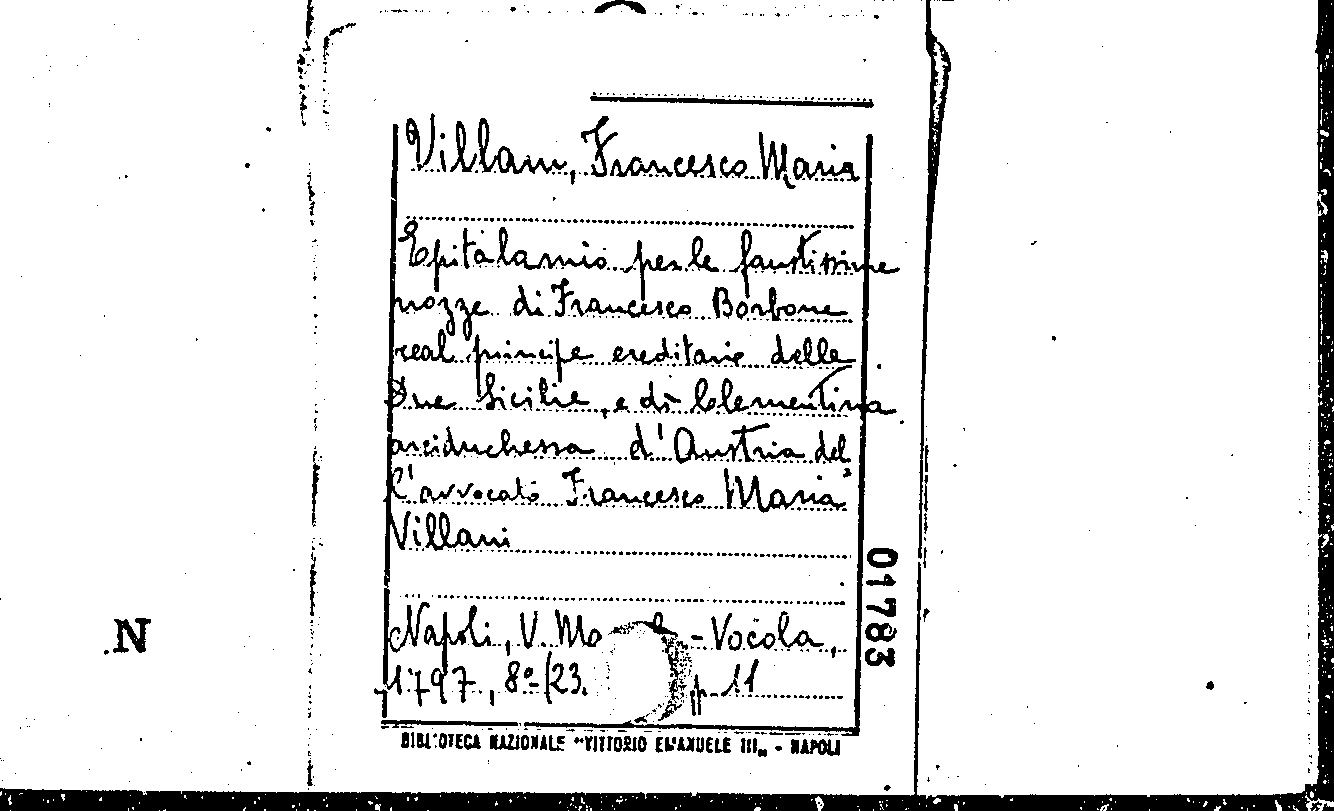 Villani, Francesco Maria
Epitalamio per le faustissime
nozze di Francesco Borbone
real principe ereditario delle
Due Sicilie, e di Clementina
arciduchessa d'Austria del
l'avvocato Francesco Maria
Villani
Napoli, V. -Vocola,
1797, 8°/23. p. 11
BIBLIOTECA NAZIONALE "VITTORIO EMANUELE III„ - NAPOLI
01783
N